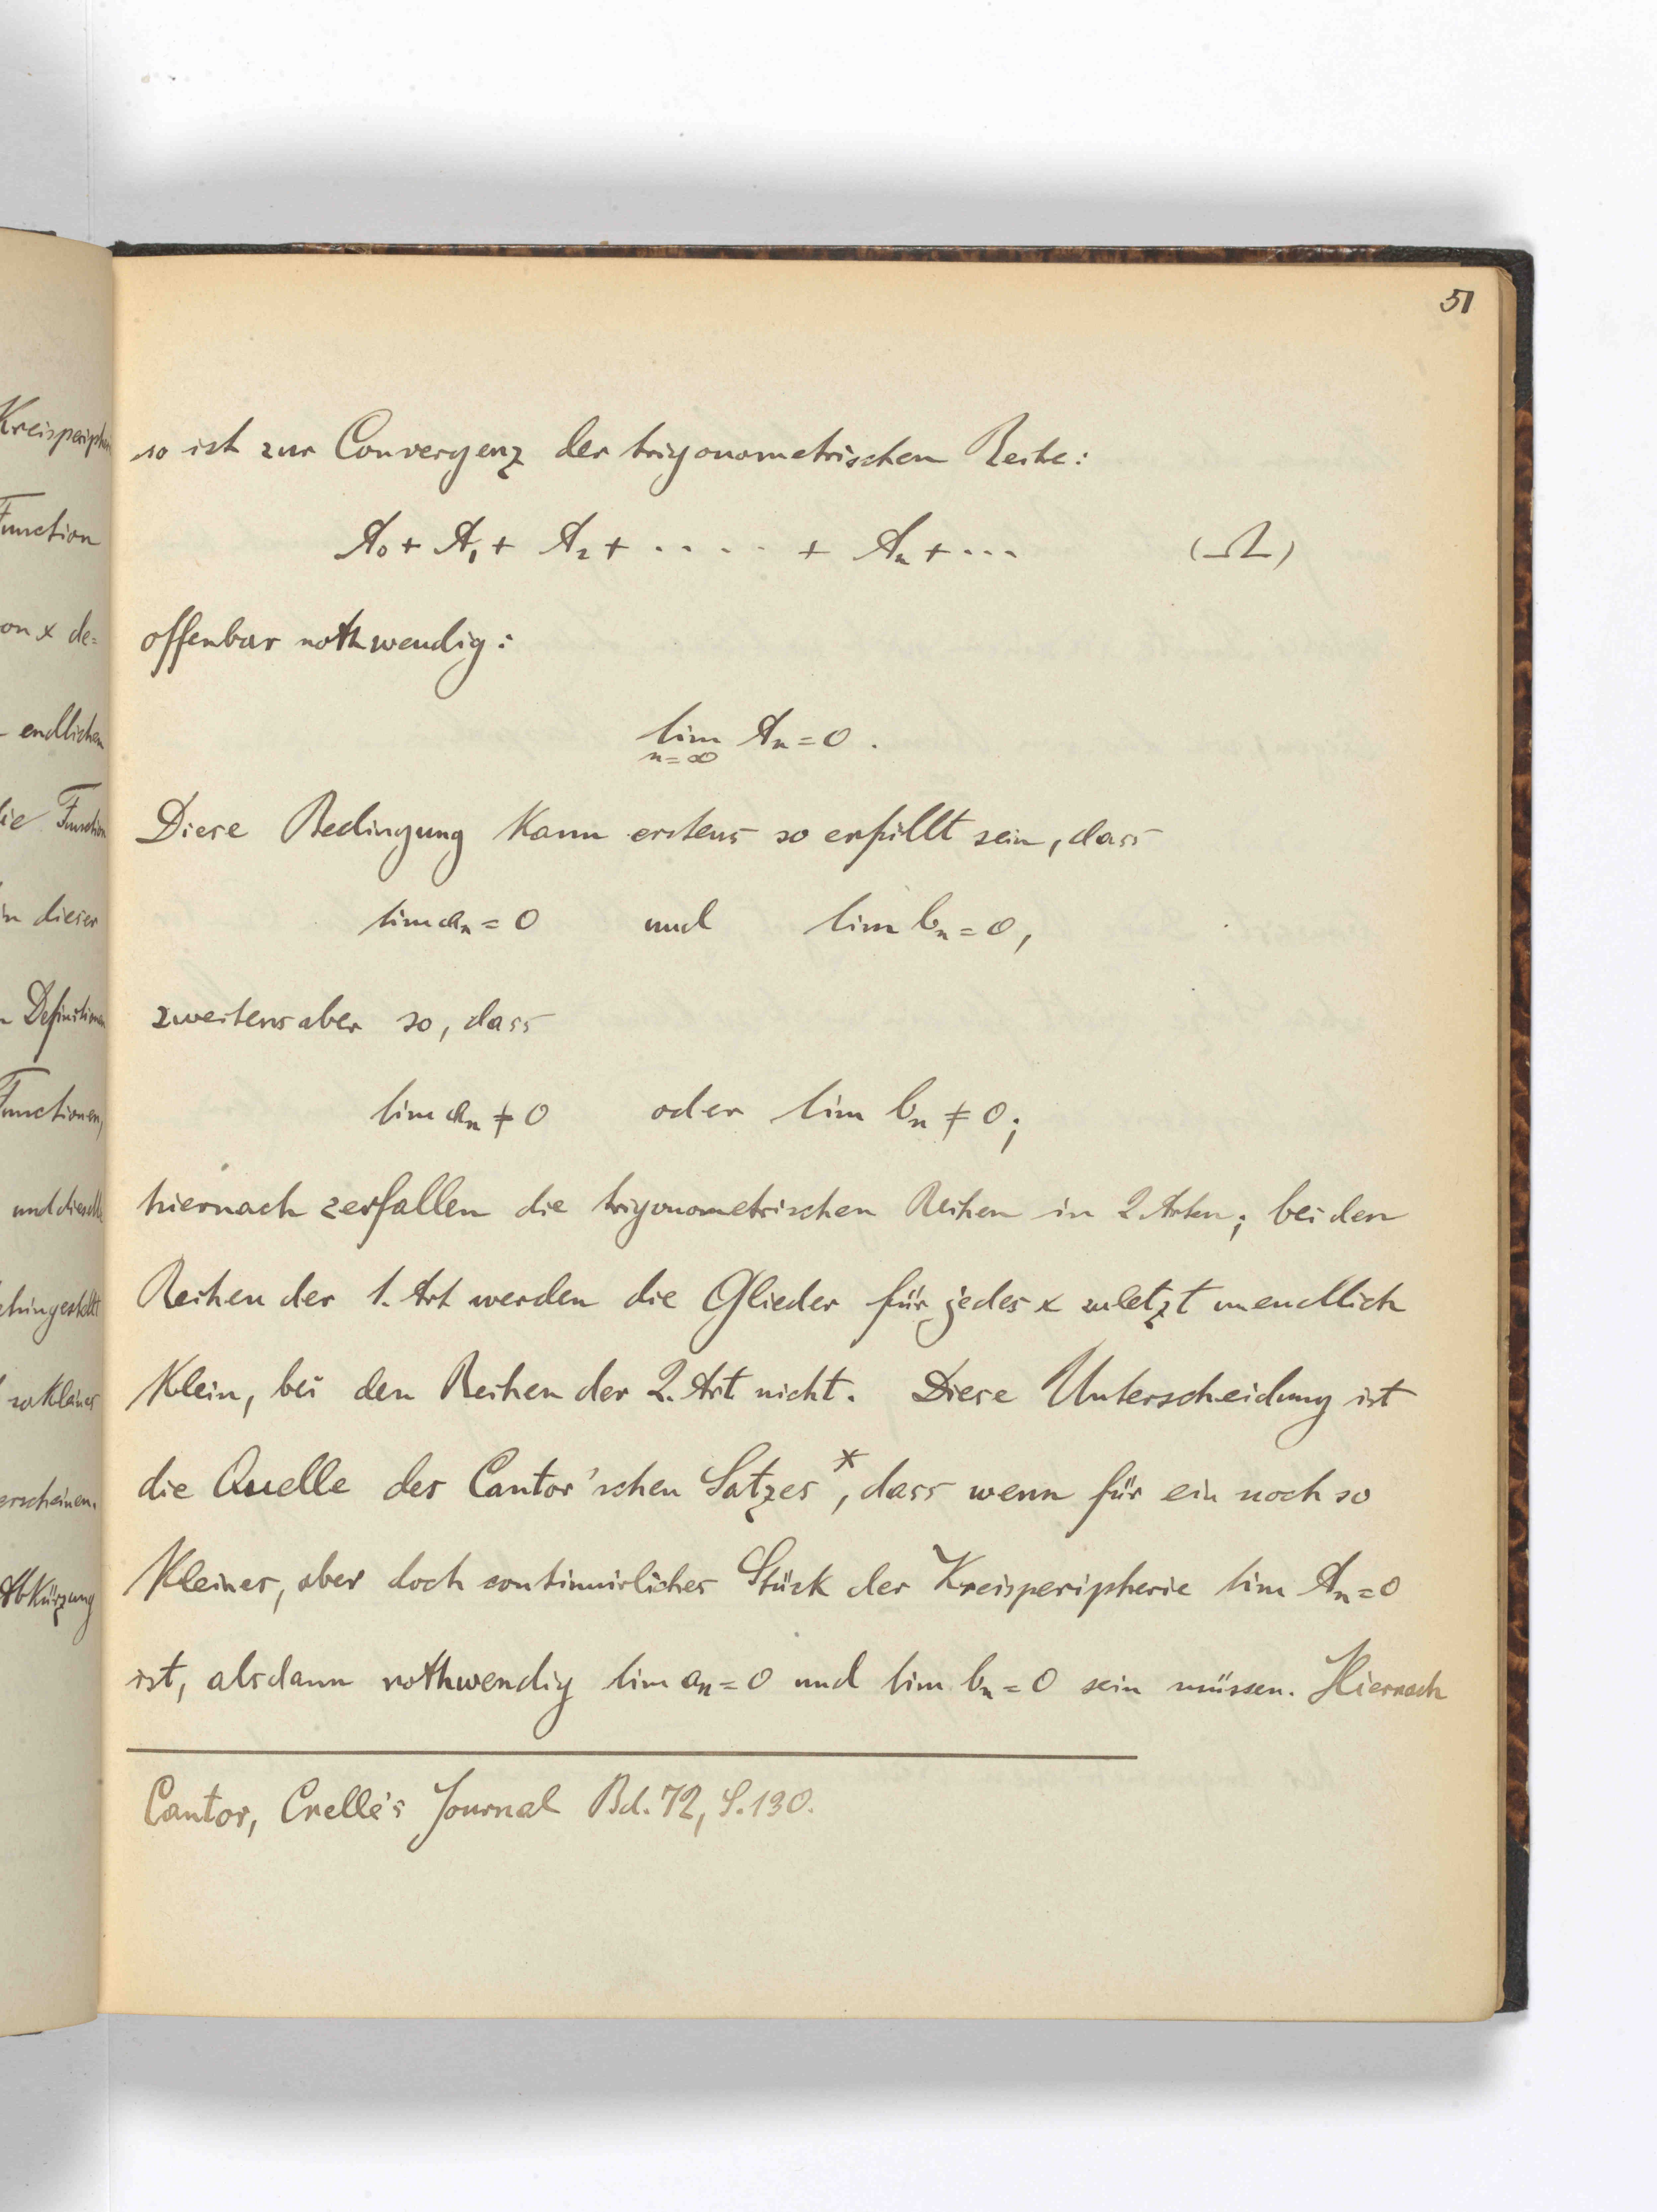 51
Kreisperiphe
Function
on x de=
endlichen
die Function
in dieser
Definitionen
Functionen,
und dieselb
hingestellt
so kleines
erscheinen.
Abkürzung
so ist zur Convergenz der trigonometrischen Reihe:
A₀ + A₁ + A₂ + ..... + Aₙ + ... (Ω)
offenbar nothwendig:
lim Aₙ = 0.
n=∞
Diese Bedingung kann erstens so erfüllt sein, dass
lim aₙ = 0 und lim bₙ = 0,
zweitens aber so, dass
lim aₙ ≠ 0 oder lim bₙ ≠ 0;
hiernach zerfallen die trigonometrischen Reihen in 2 Arten; bei den
Reihen der 1. Art werden die Glieder für jedes x zuletzt unendlich
klein, bei den Reihen der 2. Art nicht. Diese Unterscheidung ist
die Quelle des Cantor'schen Satzes*, dass wenn für ein noch so
kleines, aber doch continuirliches Stück der Kreisperipherie lim Aₙ = 0
ist, alsdann nothwendig lim aₙ = 0 und lim bₙ = 0 sein müssen. Hiernach
Cantor, Crelle's Journal Bd. 72, S. 130.